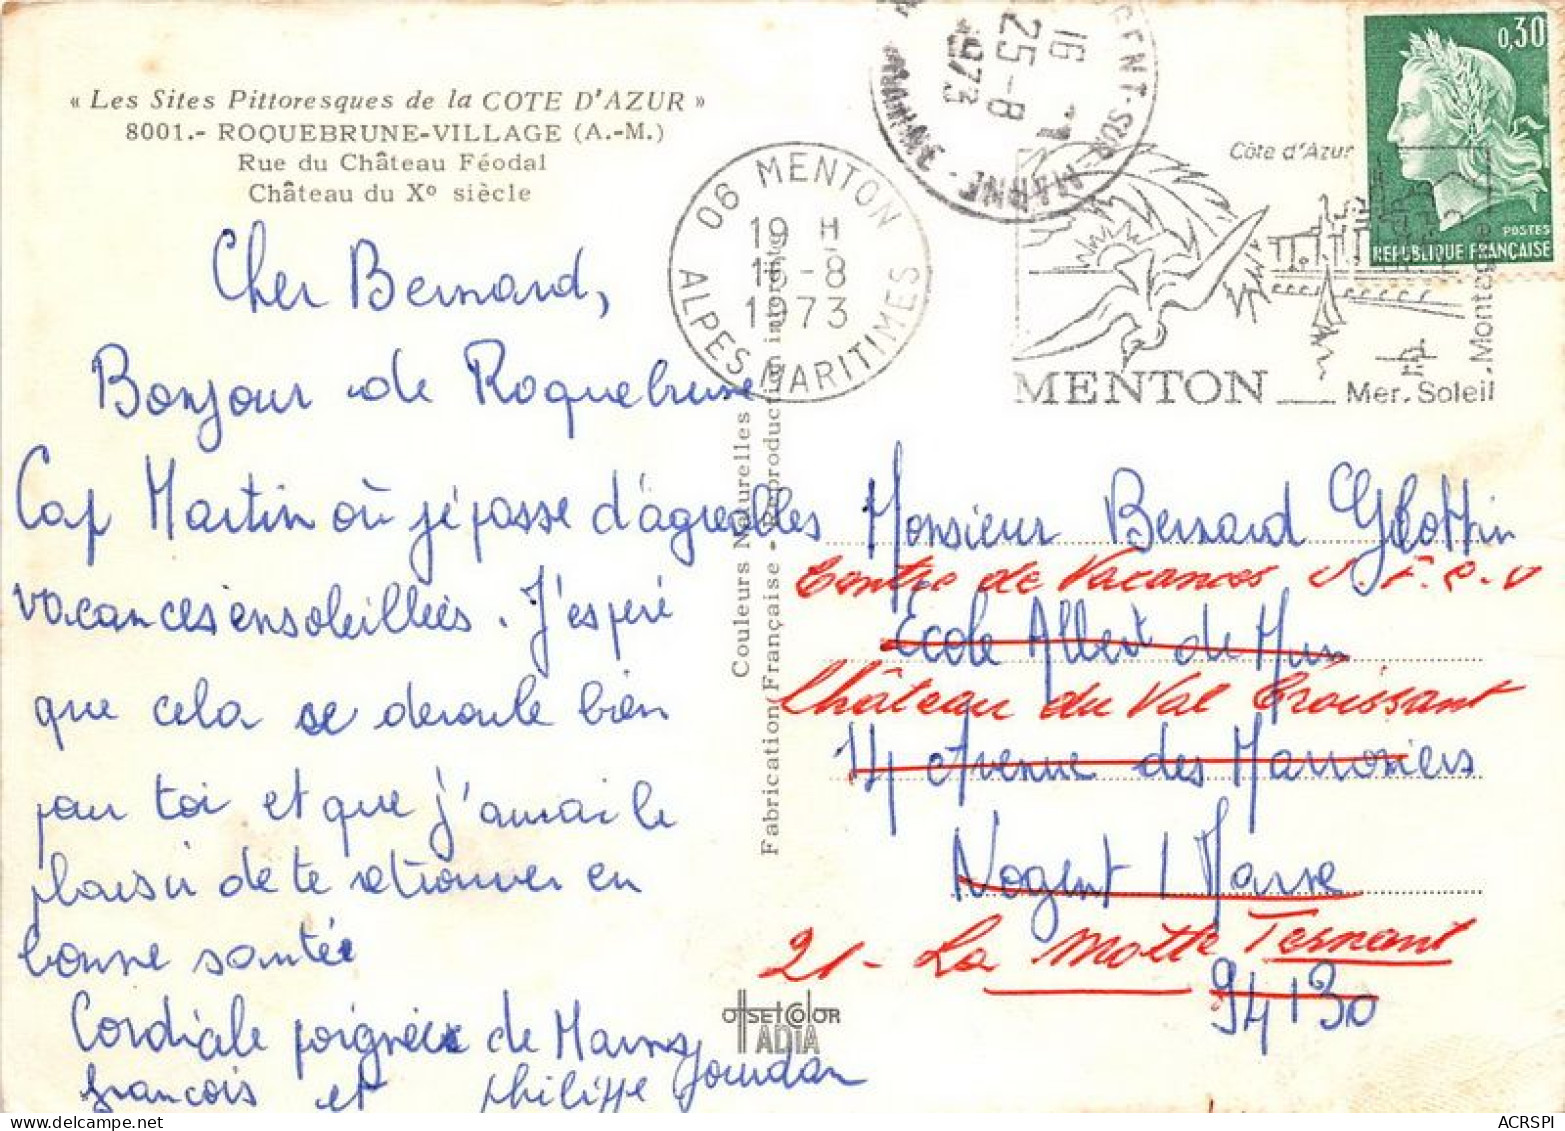 « Les Sites Pittoresques de la COTE D'AZUR »
8001.- ROQUEBRUNE-VILLAGE (A.-M.)
Rue du Château Féodal
Château du Xº siècle
Cher Bernard,
Bonjour de Roquebrune
Cap Martin où j'é passe d'agreables
vacances ensoleillées. J'esperé
que cela se deroule bien
pour toi et que j'aurai le
plaisir de te retrouver en
bonne santée
Cordiale poignée de Mains
françois et philippe Jourdan
Couleurs Naturelles
Fabrication Française - Reproduction interdite
OFFSETCOLOR
ADIA
06 MENTON
19 H
15-8
1973
ALPES MARITIMES
16
25-8
1973
GENT-SUR-MARNE
Côte d'Azur
MENTON
Mer, Soleil, Montagne
0,30
POSTES
REPUBLIQUE FRANÇAISE
Monsieur Bernard
Centre de Vacances
Ecole Albert de Mun
Château du Val Croissant
14 Avenue des Marroniers
Nogent / Marne
21 - La Motte Ternant
94130
ACRSPI